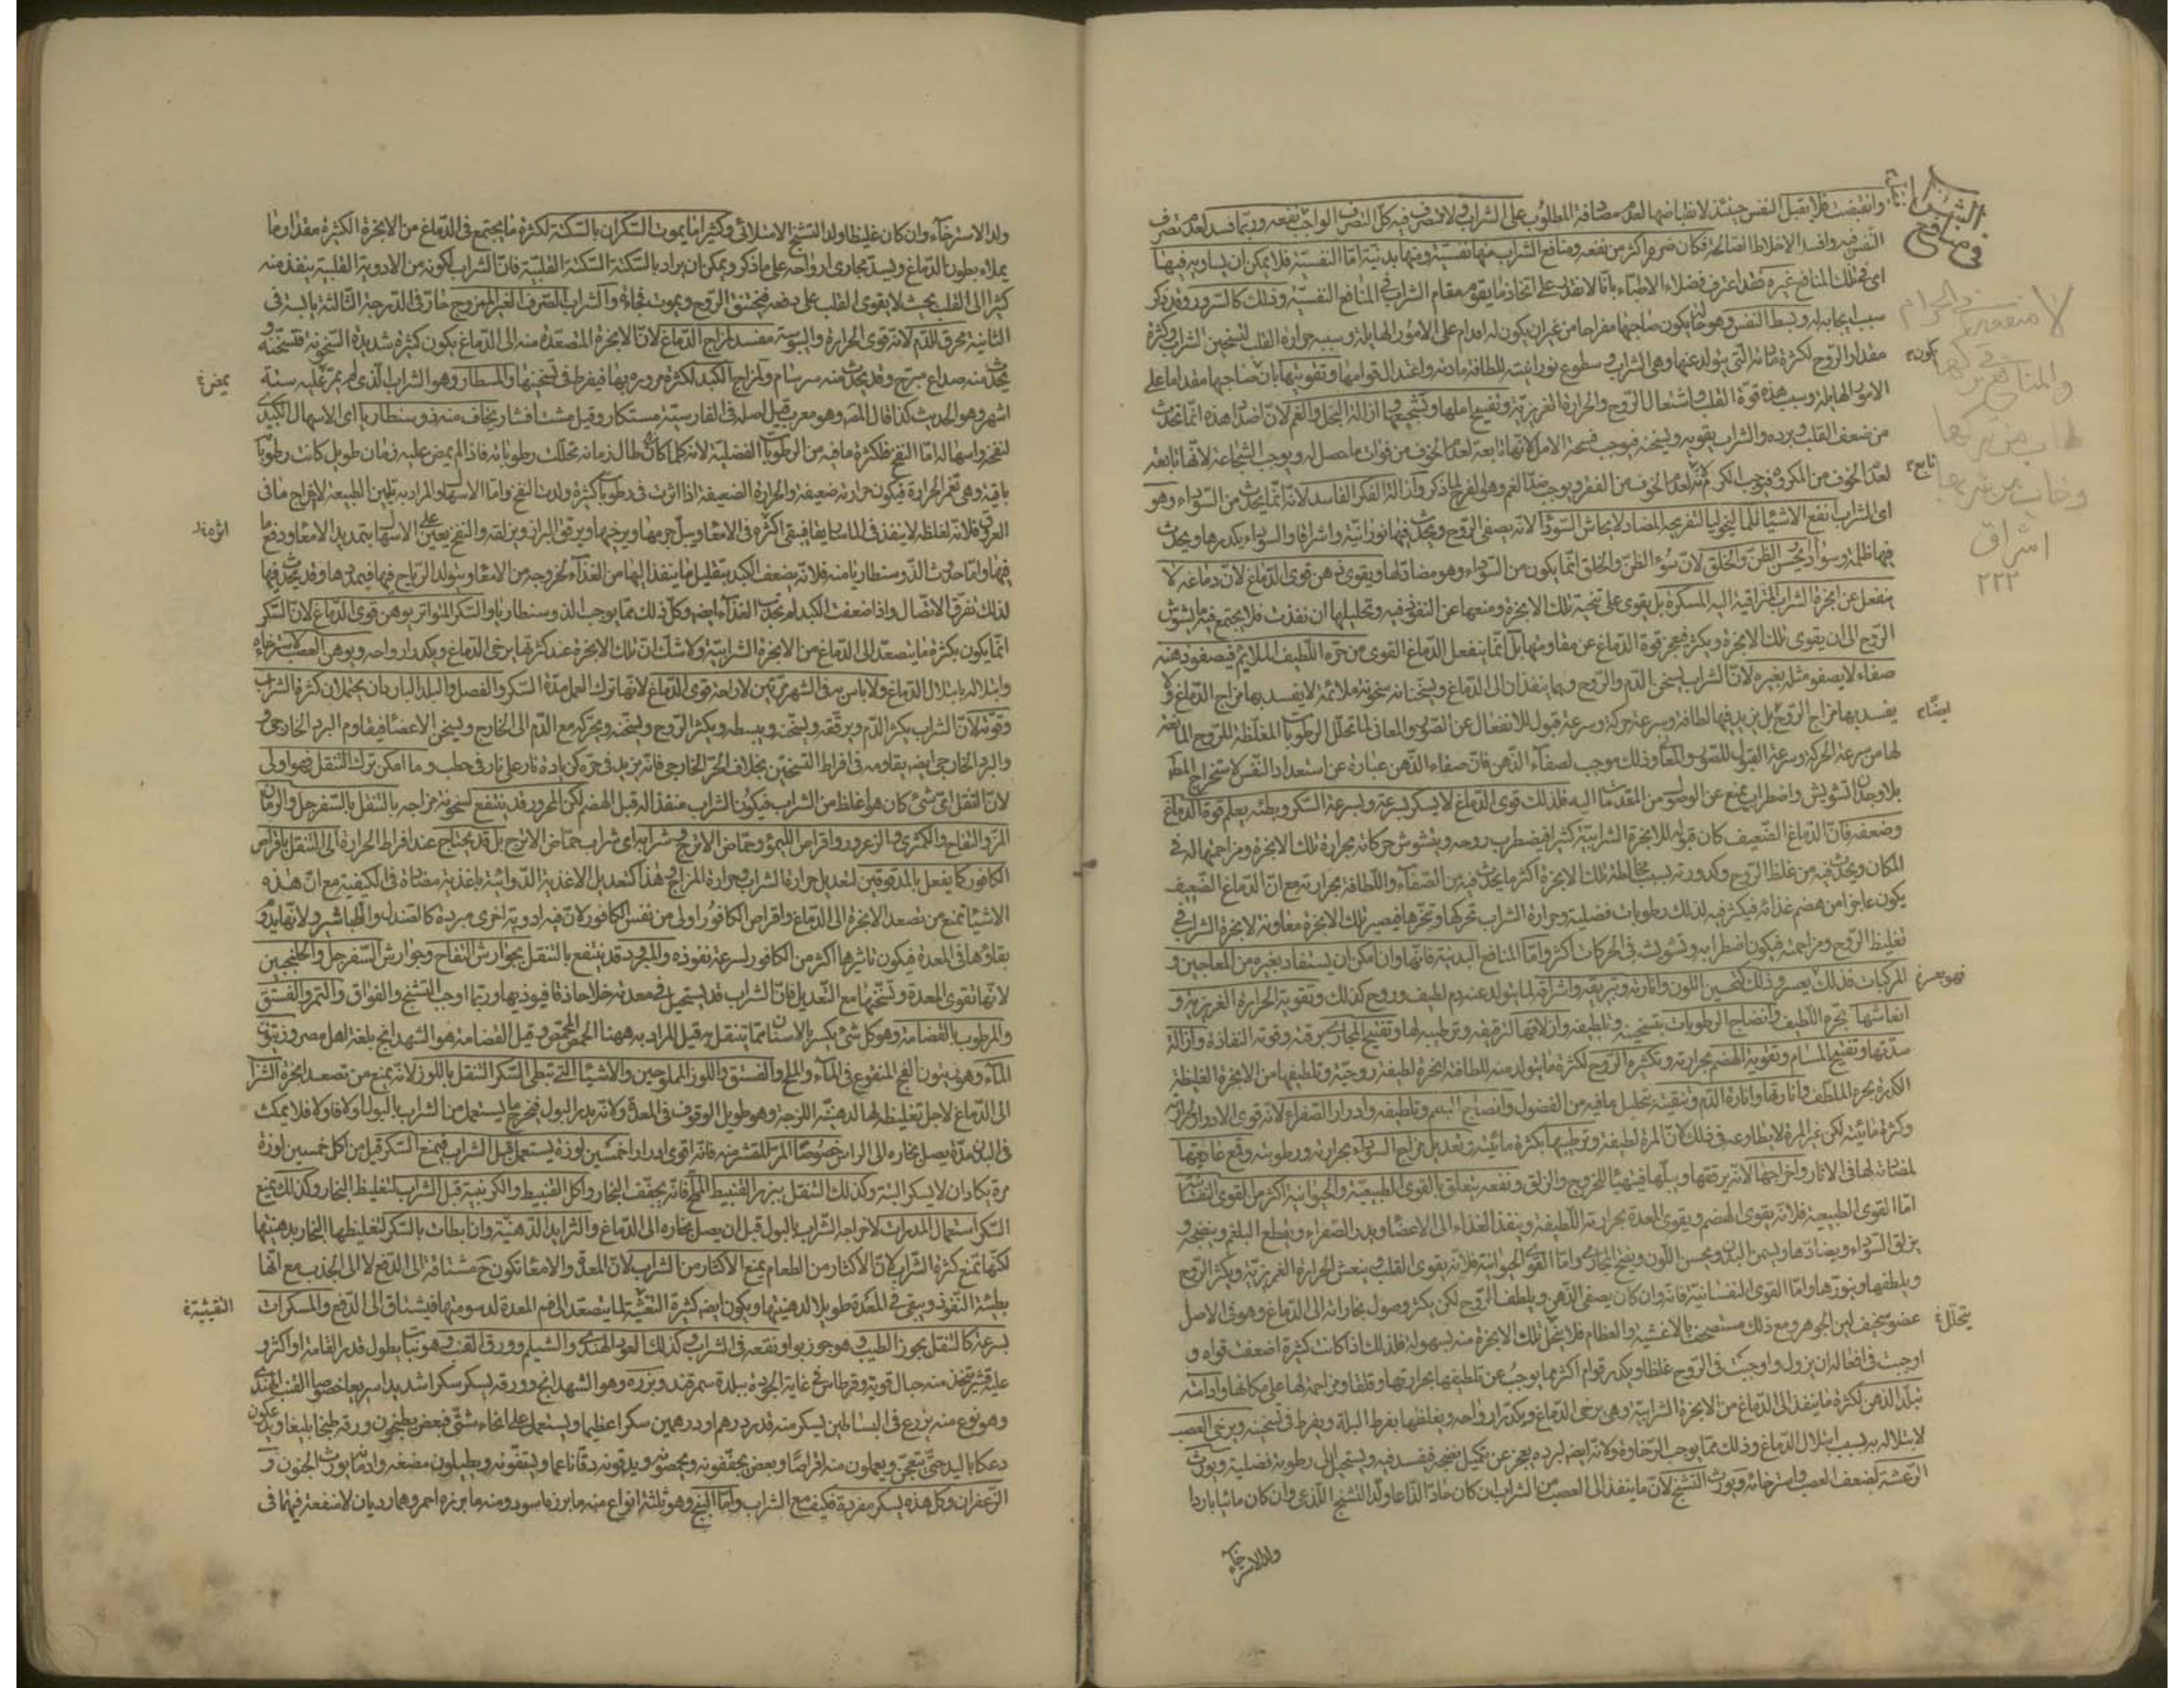 الشراب
في منافع
وانقبضت فلا يقبل النفس حينئذ لانقباضها لعدم مصادفة المطلوب على الشراب ولا تتصرف فيه كل التصرف الواجب نفعه وربما فسد لعدم تصرف
النفس فيه وافسد الاخلاط الصالحة فكان ضرره اكثر من نفعه ومنافع الشراب منها نفسية ومنها بدنية اما النفسية فلا يمكن ان يساويه فيها
اى في تلك المنافع غيره فقد اعترف فضلاء الاطباء بانا لا نقدر على اتخاذ ما يقوم مقام الشراب في المنافع النفسية وذلك كالسرور وقد ذكر
سبب ايجابه له وبسط النفس وهو حالة يكون صاحبها مفراحا من غير ان يكون له اقدام على الامور الهايلة وسببه حرارة القلب لتسخين الشراب وكثرة
مقدار الروح لكثرة مادته التي يتولد عنها وهى الشراب وسطوع نورانيته للطافة مادته واعتدال قوامها وتقويتها بان صاحبها مقداما على
الامور الهايلة وسبب هذه قوة القلب واشتعال الروح والحرارة الغريزية وتفسيح املها وتشجيعها وازالة البخل والغم لان اضداد هذه انما تحدث
من ضعف القلب وبرده والشراب يقويه ويسخنه فيوجب فسحة الامل لانها تابعة لعدم الخوف من فوات ما حصل له ويوجب الشجاعة لانها تابعة
لعدم الخوف من المكروه فيوجب الكرم لانه لعدم الخوف من الفقر ويوجب ضد الغم وهو الفرح لما ذكر وازالة الفكر الفاسد لانه انما يحدث من السوداء وهو
اى الشراب انفع الاشياء للماليخوليا لتفريحه المضاد لايحاش السوداء لانه يصفى الروح ويحدث فيها نورانية واشراقا والسوداء يكدرها ويحدث
فيها ظلمة وسوادا ويحسن الظن والخلق لان سوء الظن والخلق انما يكون من السوداء وهو مضاد لها ويقوى ذهن قوى الدماغ لان دماغه لا
ينفعل عن ابخرة الشراب المتراقية اليه المسكرة بل يقوى على تنحية تلك الابخرة ومنعها عن النفوذ فيه وتحليلها ان نفذت فلا يجتمع فيه ما يشوش
الروح الى ان يقوى تلك الابخرة ويكثر فيعجز قوة الدماغ عن مقاومتها بل انما ينفعل الدماغ القوى من حره اللطيف الملايم فيصفو ذهنه
صفاء لا يصفو مثله بغيره لان الشراب يسخن الدم والروح وهما ينفذان الى الدماغ ويسخنانه سخونة ملائمة لا يفسد بها مزاج الدماغ ولا
يفسد بها مزاج الروح بل يزيد فيها لطافة وسرعة حركة وسرعة قبول للانفعال عن الصور والمعاني لما تحلل الرطوبات المغلظة للروح المانعة
لها من سرعة الحركة وسرعة القبول للصور والمعاني وذلك موجب لصفاء الذهن فان صفاء الذهن عبارة عن استعداد النفس لاستخراج المط
بلا وجدان تشويش واضطراب يمنع عن الوصول من المقدمات اليه فلذلك قوى الدماغ لا يسكر بسرعة وبسرعة السكر وبطئه يعلم قوة الدماغ
وضعفه فان الدماغ الضعيف كان قبوله للابخرة الشرابية كثيرا فيضطرب روحه ويتشوش حركاته بحرارة تلك الابخرة ومزاحمتها له في
المكان ويحدث فيه من غلظ الروح وكدورته بسبب مخالطة تلك الابخرة اكثر مما يحدث فيه من الصفاء واللطافة بحرارته مع ان الدماغ الضعيف
يكون عاجزا من هضم غذائه فيكثر فيه لذلك رطوبات فضلية وحرارة الشراب تحركها وتبخرها فيصير تلك الابخرة معاونة لابخرة الشراب في
تغليظ الروح ومزاحمته فيكون اضطرابه وتشويشه في الحركات اكثر واما المنافع البدنية فانها وان امكن ان يستفاد بغيره من المعاجين و
المركبات فذلك يعسر وذلك كتحسين اللون وانارته وتبريقه واشراقه لما يتولد عنه دم لطيف وروح كذلك وتقوية الحرارة الغريزية و
انعاشها بحره اللطيف وانضاج الرطوبات بتسخينه وتلطيفه وازلاقها لترقيقه وترطيبه لها وتفتيح المجارى برقته وقوته النفاذة وازالة
سددها وتفتيح المسام وتقوية الهضم بحرارته وتكثيره الروح لكثرة ما يتولد منه للطافته ابخرة لطيفة روحية وتلطيفها من الابخرة الغليظة
الكدرة بحره الملطف وانارتها وانارة الدم وتنقيته بتحليل ما فيه من الفضول وانضاج البلغم وتلطيفه وادرار الصفراء لانه قوى الادرار لحرارته
وكثرة مائيته لكن غير المرة لا يطاوعه في ذلك كان المرة لطيفة وترطيبها بكثرة مائيته وتعديل مزاج السوداء بحرارته ورطوبته وقمع عاديتها
لمضادته لها في الاثار واخراجها لانه يرققها ويبلها فيتهيأ للخروج والزلق ونفعه يتعلق بالقوى الطبيعية والحيوانية اكثر من القوى النفسانية
اما القوى الطبيعية فلانه يقوى الهضم ويقوى المعدة بحرارته اللطيفة وينفذ الغذاء الى الاعضاء ويدر الصفراء ويقطع البلغم وينضجه و
يزلق السوداء ويضادها ويسمن البدن ويحسن اللون ويفتح المجارى واما القوى الحيوانية فلانه يقوى القلب وينعش الحرارة الغريزية ويكثر الروح
ويلطفها وينورها واما القوى النفسانية فانه وان كان يصفى الذهن ويلطف الروح لكن يكثر وصول بخاراته الى الدماغ وهو في الاصل
عضو سخيف لين الجوهر ومع ذلك مستصحف بالاغشية والعظام فلا يتحلل تلك الابخرة منه بسهولة فلذلك اذا كانت كثيرة اضعفت قواه و
اوجبت في افعاله ان يزول واوجبت في الروح غلظا وبكدر قوام اكثر مما يوجب عن تلطيفها بحرارتها وقلقا ومزاحمة لها على مكانها وادامته
تبلد الذهن لكثرة ما ينفذ الى الدماغ من الابخرة الشرابية وهى يرخى الدماغ ويكدر ارواحه ويغلظها بفرط البلة ويفرط في تسخينه ويرخى العصب
لابتلاله به بسبب ابتلال الدماغ وذلك مما يوجب الرخاوة ولانه ايضا لبرده يعجز عن تكميل نضجه فيفسد فيه ويستحيل الى رطوبة فضلية ويورث
الرعشة لضعف العصب واسترخائه ويورث التشنج لان ما ينفذ الى العصب من الشراب ان كان حادا لذاعا ولد التشنج اللذعى وان كان مائيا باردا
ولد الاسترخاء
لا منفعة في الحرام
طاب من تركها
وخاب من شربها
اشراق
٢٢٢
كونه
تابع
ايضا
فهو يعسر
يتحلل
ولد الاسترخاء وان كان غليظا ولد التشنج الامتلائى وكثيرا ما يموت السكران بالسكتة لكثرة ما يجتمع في الدماغ من الابخرة الكثيرة مقدار ما
يملاء بطون الدماغ ويسد مجارى ارواحه على ما ذكر ويمكن ان يراد بالسكتة السكتة القلبية فان الشراب لكونه من الادوية القلبية ينفذ منه
كثيرا الى القلب بحيث لا يقوى القلب على دفعه فيختنق الروح ويموت فجاءة والشراب الصرف الغير الممزوج حار في الدرجة الثالثة يابسة في
الثانية محرق للدم لانه قوى الحرارة واليبوسة مفسد لمزاج الدماغ لان الابخرة المتصعدة منه الى الدماغ يكون كثيرة شديدة السخونة فتسخنه و
يحدث منه صداع مبرح وقد يحدث منه سرسام ولمزاج الكبد لكثرة مروره بها فيفرط في تسخينها والمسطار وهو الشراب الذى لم يمر عليه ستة
اشهر وهو الحديث كذا قال المص وهو معرب قيل اصله في الفارسية مستكار وقيل مشت افشار يخاف منه ذوسنطاريا اى الاسهال الكبدى
لنفخه واسهاله اما النفخ فلكثرة ما فيه من الرطوبات الفضلية لانه كلما كان طال زمانه تحللت رطوباته فاذا لم يمض عليه زمان طويل كانت رطوباته
باقية وهى تغمر الحرارة فيكون حرارته ضعيفة والحرارة الضعيفة اذا اثرت في رطوبات كثيرة ولدت النفخ واما الاسهال والمراد به تليين الطبيعة لاخراج ما في
العروق فلانه لغلظه لا ينفذ في الماساريقا فيبقى اكثره في الامعاء ويبل جرمها ويرخيها ويرقق البراز ويزلقه والنفخ يعين على الاسهال بتمديد الامعاء ودفع ما
فيها واما حدوث الذوسنطاريا منه فلانه يضعف الكبد بتقليل ما ينفذ اليها من الغذاء لخروجه من الامعاء وتولد الرياح فيها فيمددها وقد يحدث فيها
لذلك تفرق الاتصال واذا ضعفت الكبد لم تجذب الغذاء ايضا وكل ذلك مما يوجب الذوسنطاريا والسكر المتواتر يوهن قوى الدماغ لان السكر
انما يكون بكثرة ما يتصعد الى الدماغ من الابخرة الشرابية ولا شك ان تلك الابخرة عند كثرتها يرخى الدماغ ويكدر ارواحه ويوهن العصب لاسترخائه
وابتلاله بابتلال الدماغ ولا باس به في الشهر مرتين لاراحة قوى الدماغ لانها تترك العمل مدة السكر والفصل والبلد الباردان يحتملان كثرة الشراب
وقوته لان الشراب يكثر الدم ويرققه ويسخنه ويبسطه ويكثر الروح ويسخنه ويحركه مع الدم الى الخارج ويسخن الاعضاء فيقاوم البرد الخارجى و
والبرد الخارجى ايضا يقاومه في افراط التسخين بخلاف الحر الخارجى فانه يزيد في حره كزيادة نار على نار في حطب وما امكن ترك التنقل فهو اولى
لان النقل اى شئ كان هو اغلظ من الشراب فيكون الشراب منفذا له قبل الهضم لكن المحرور قد ينتفع لسخونة مزاجه بالتنقل بالسفرجل والرمان
المز والتفاح والكمثرى والزعرور واقراص الليمو وحماض الاترج وشرابه اى شراب حماض الاترج بل قد يحتاج عند افراط الحرارة الى التنقل باقراص
الكافور كما يفعل بالمدقوقين لتعديل حرارة الشراب وحرارة المزاج وهذا كتعديل الاغذية الدوائية باغذية مضادة في الكيفية مع ان هذه
الاشياء تمنع من تصعد الابخرة الى الدماغ واقراص الكافور اولى من نفس الكافور لان فيه ادوية اخرى مبردة كالصندل والطباشير ولانها يدوم
بقاؤها في المعدة فيكون تاثيرها اكثر من الكافور لسرعة نفوذه والمبرود قد ينتفع بالتنقل بجوارش التفاح وجوارش السفرجل والجلنجبين
لانها تقوى المعدة وتسخنها مع التعديل فان الشراب قد يستحيل في معدته خلا حاذقا فيوذيها وربما اوجب التشنج والفواق والتمر والفستق
والمرطوب بالقضامة وهو كل شئ يكسر بالاسنان مما يتنقل به قيل المراد به ههنا الحمص المحمص وقيل القضامة هو الشهدانج بلغة اهل مصر وزيتون
الماء وهو زيتون الفج المنقوع في الماء والملح والفستق واللوز المملوحين والاشياء التى تبطى السكر التنقل باللوز لانه يمنع من تصعد ابخرة الشراب
الى الدماغ لاجل تغليظه لها لدهنيته اللزجة وهو طويل الوقوف في المعدة ولانه يدر البول فيخرج ما يستعمل من الشراب بالبول اولا فاولا فلا يمكث
في البدن مدة يصل بخاره الى الراس خصوصا المر المقشر منه فانه اقوى ادرارا خمسين لوزة يستعمل قبل الشراب فيمنع السكر قيل من اكل خمسين لوزة
مرة يكاد ان لا يسكر البتة وكذلك التنقل ببزر القنبيط المملح فانه يجفف البخار واكل القنبيط والكرنبية قبل الشراب لتغليظ البخار وكذلك يمنع
السكر استعمال المدرات لاخراجه الشراب بالبول قبل ان يصل بخاره الى الدماغ والثرايد الدهنية وان ابطات بالسكر لتغليظها البخار بدهنيتها
لكنها تمنع كثرة الشراب لان الاكثار من الطعام يمنع الاكثار من الشراب لان المعدة والامعاء تكون ح مشتاقة الى الدفع لا الى الجذب مع انها
بطيئة النفوذ ويبقى في المعدة طويلا لدهنيتها ويكون ايضا كثيرة التغثية لما يتصعد الى فم المعدة لدسومتها فيشتاق الى الدفع والمسكرات
بسرعة كالتنقل بجوز الطيب وهو جوز بوا ونقعه في الشراب وكذلك العود الهندى والشيلم وورق القنب وهو نبات يطول قدر القامة او اكثر و
عليه قشر يتخذ منه حبال قوية وقرطاس في غاية الجودة ببلدة سمرقند وبزره وهو الشهدانج وورقه يسكر سكرا شديدا سريعا خصوصا القنب الهندى
وهو نوع منه يزرع في البساتين يسكر منه قدر درهم او درهمين سكرا عظيما ويستعمل على انحاء شتى فبعض يطبخون ورقه طبخا بليغا ويدعكونه
دعكا باليد حتى يتعجن ويعملون منه اقراصا وبعض يجففونه ويحمصونه ويدقونه دقا ناعما ويستفونه ويطيلون مضغه وادمانه يورث الجنون و
الزعفران وكل هذه يسكر مفردة فكيف مع الشراب واما البنج وهو ثلثة انواع منه ما بزره اسود ومنه ما بزره احمر وهما رديان لا منفعة فيهما في
يمض
التغثية